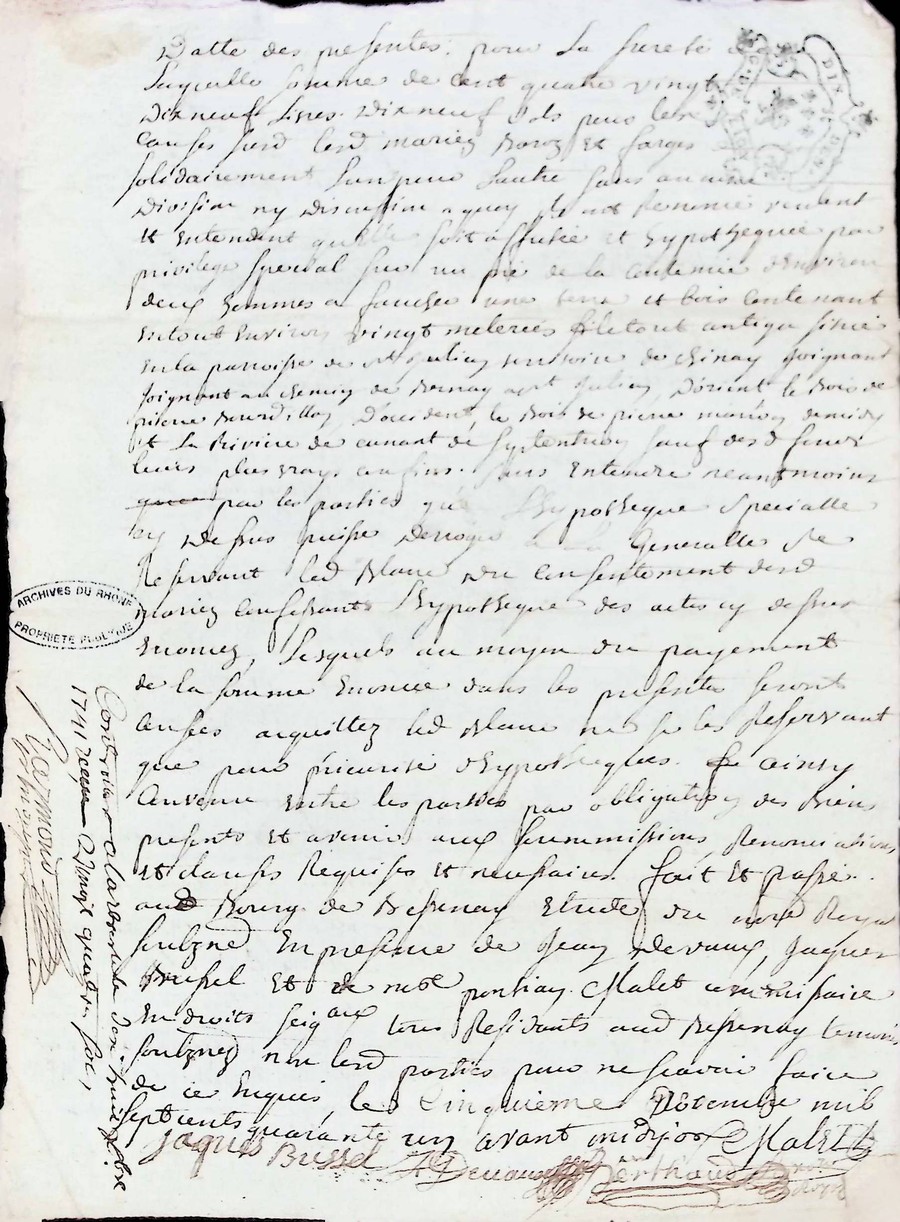 Datte des presentes. pour La sureté de
Laquelle somme de Cent quatre vingt
Dixneuf Livres Dixneuf sols pour les
Causes susd lesd mariez et farges
solidairement Lun pour Lautre sans aucune
Division ny Discussion a quoy ils ont Renoncé veulent
et Entendent quelle soit affectée et hypothequée par
privilege special sur un pré de la Contenüe denviron
deux hommes a faucher une terre et bois Contenant
Entout Environ vingt meterées le tout antiqu situé
En la parroisse de st Julien territoire de Joignant
Joignant au chemin de Bernay a st Julien, Dorient le Bois de
pierre Bourdillon, Doccident, le Bois de pierre de midy
et La Riviere de de septentrion sauf desd fonds
leurs plus vrays confins. sans Entendre neantmoins
par les parties que Lhypotheque specialle
cy Dessus puisse Deroger a La Generalle se
Reservant led Blanc du Consentement desd
mariez Confessants Lhypotheque des actes cy dessus
Enoncez, Lesquels au moyen du payement
de la somme Enoncée dans les presentes seront
Censés acquittez led Blanc ne se les Reservant
que pour priorité dhypotheques. Le ainsy
Convenu entre les parties par obligation des Biens
presents et avenir aux soummissions, Renonciations,
et clauses Requises et necessaires. fait et passé
aud Bourg de Bessenay Etude du nore Royal
soubzné En presence de Jean Devaux, Jaques
Bussel et de me pontian Malet commissaire
En droits seigaux tous Residants aud Bessenay temoins
soubznez non lesd parties pour ne scavoir faire
de ce Enquis, le Cinquieme Decembre mil
septcents quarante un avant midy Malet
Jaques Bussel Devaux Berthaud
ARCHIVES DU RHONE
PROPRIETE PUBLIQUE
Controllé a Larbresle Le dix huit xbre
1741 Recu Vingt quatre sols,